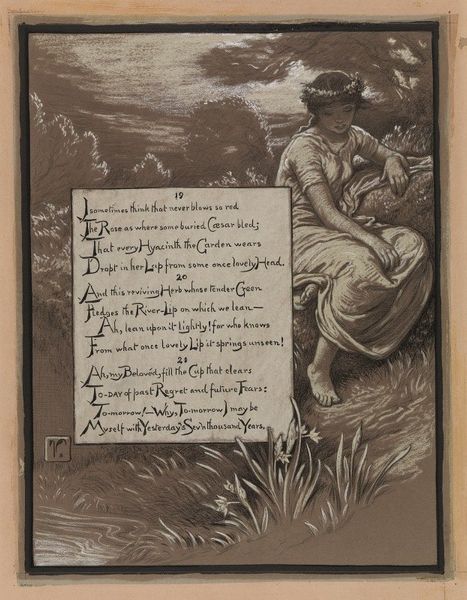 19
I sometimes think that never blows so red
The Rose as where some buried Cæsar bled;
That every Hyacinth the Garden wears
Dropt in her Lap from some once lovely Head.
20
And this reviving Herb whose tender Green
Fledges the River-Lip on which we lean—
Ah, lean upon it lightly! for who knows
From what once lovely Lip it springs unseen!
21
Ah, my Belovéd, fill the Cup that clears
TO-DAY of past Regret and future Fears:
To-morrow!—Why, To-morrow I may be
Myself with Yesterday's Sev'n thousand Years.
V